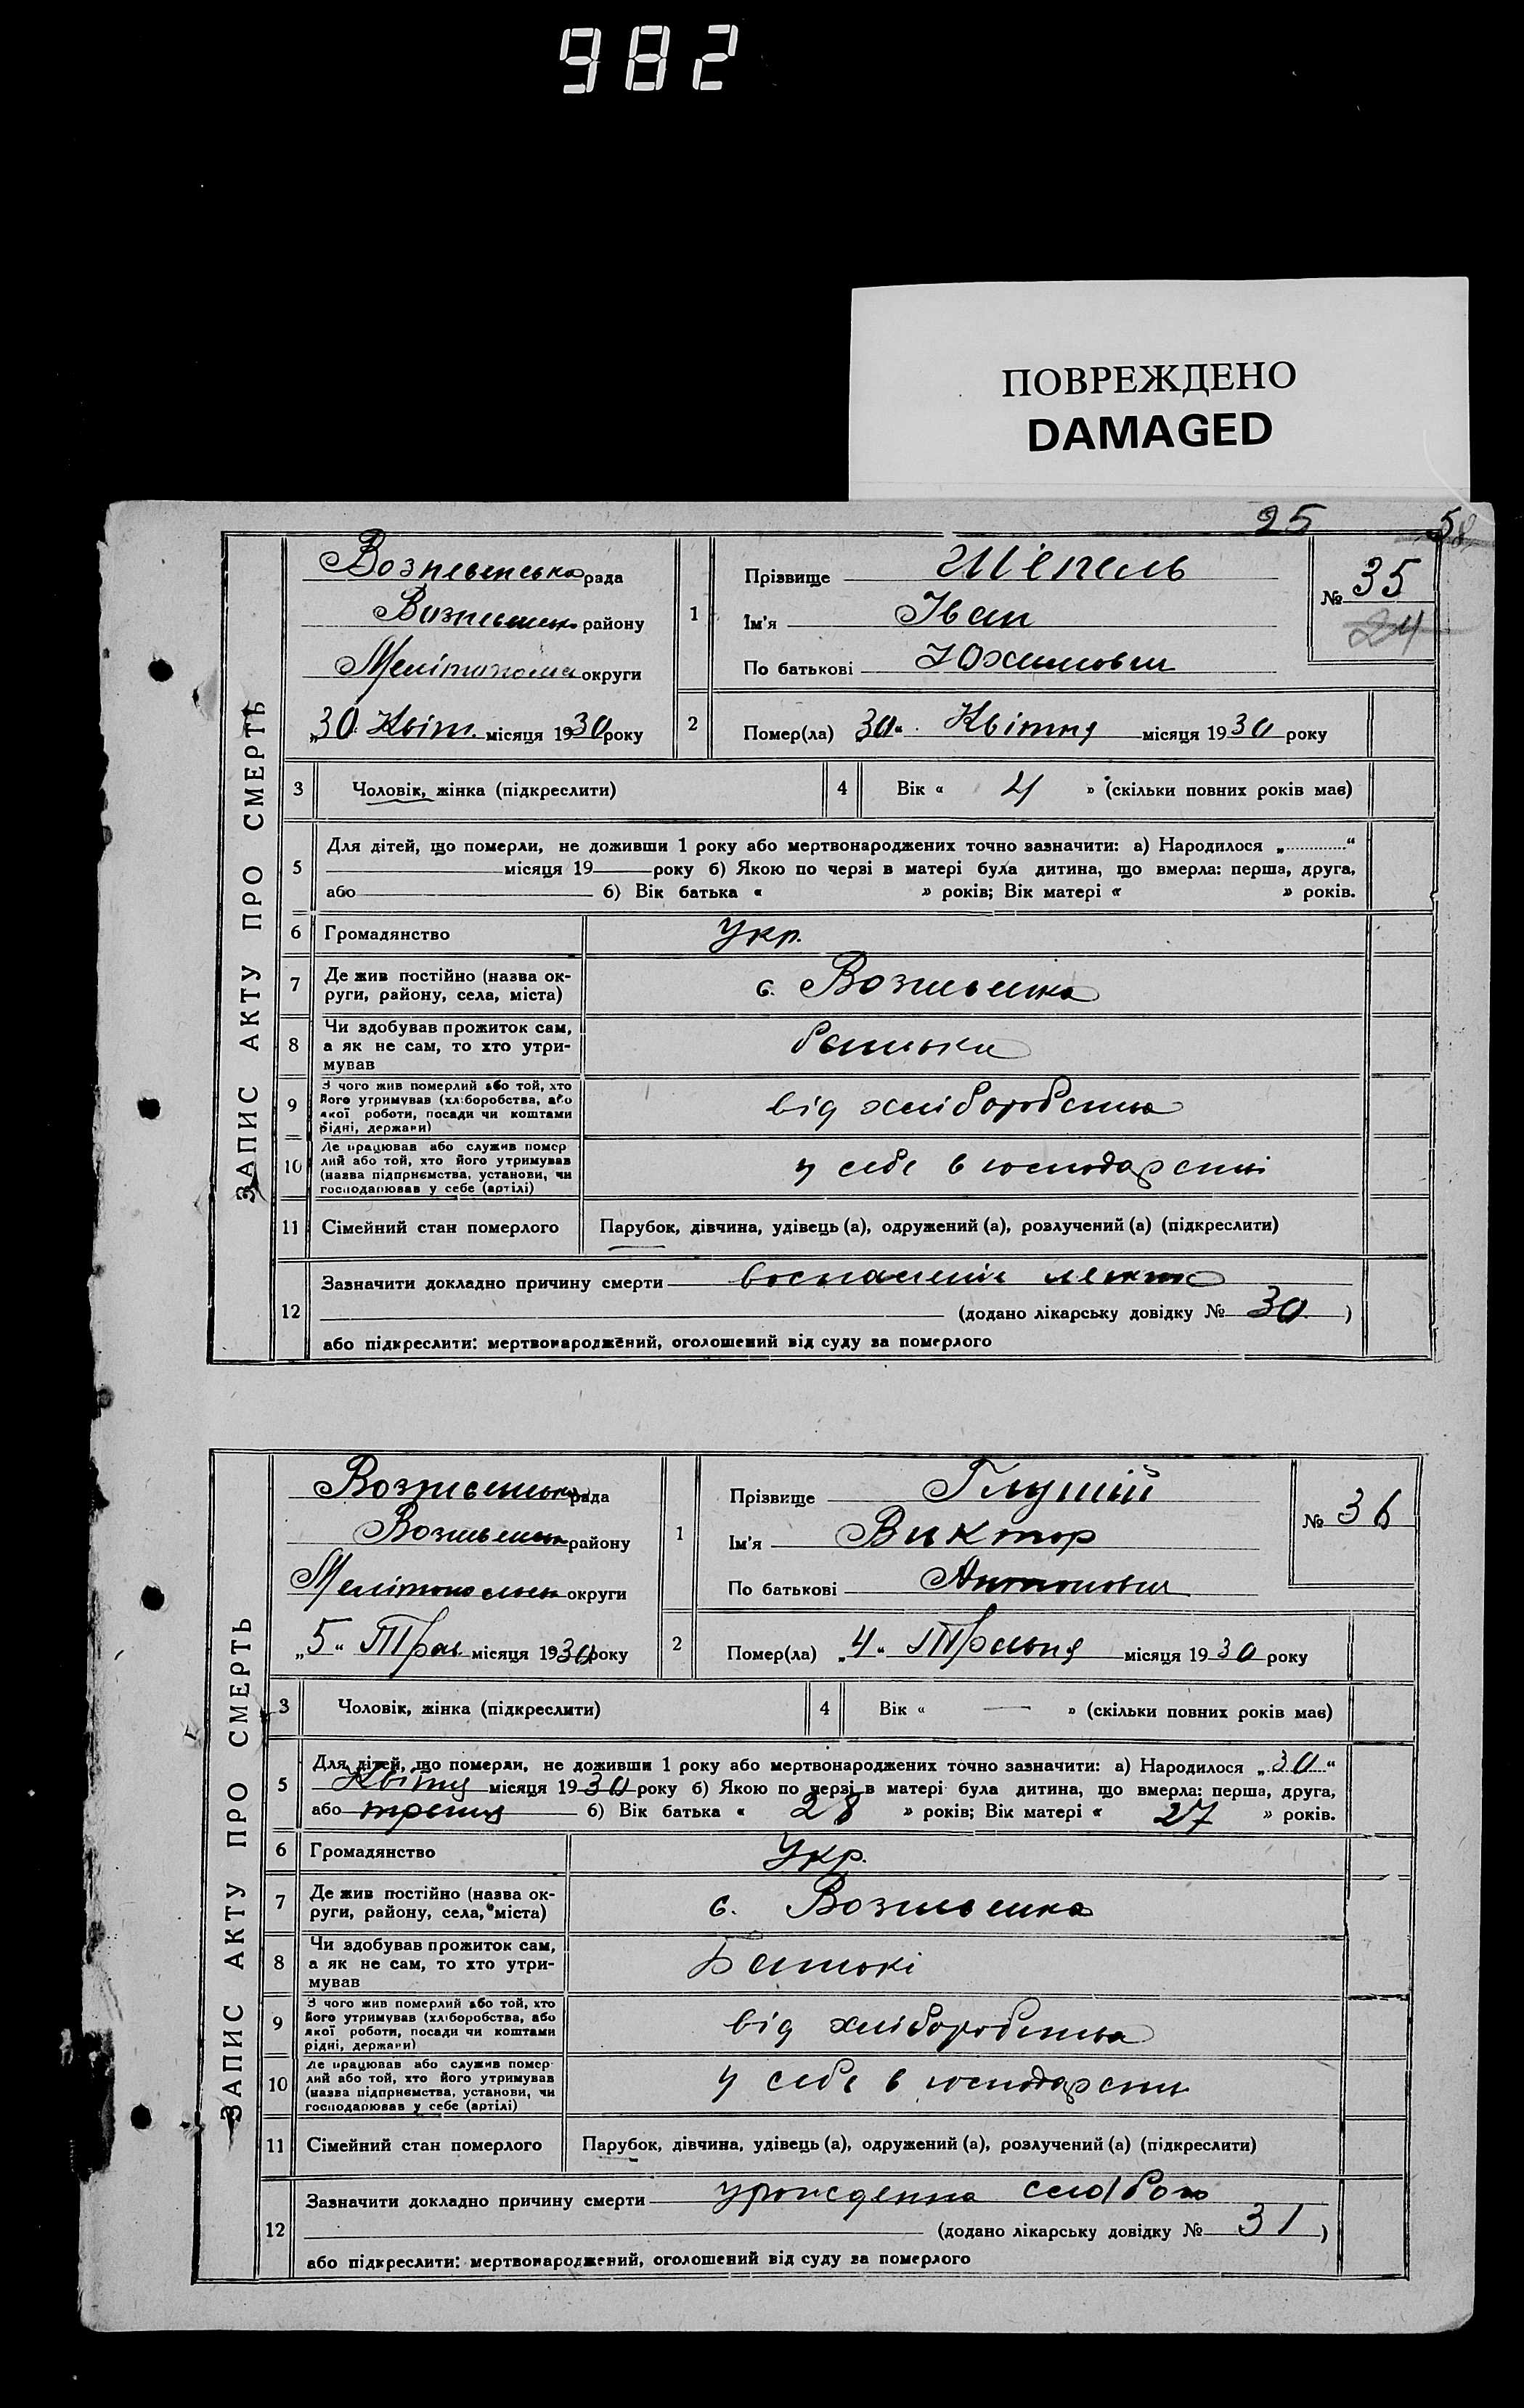 982
ПОВРЕЖДЕНО
DAMAGED
25 58
ЗАПИС АКТУ ПРО СМЕРТЬ
Вознесенська рада
Вознесенськ району
Мелітопольск округи
„30 Квіт. місяця 1930 року
1 Прізвище Шепель
Ім'я Іван
По батькові Юхимович
№ 35
24
2 Помер(ла) 30“ Квітня місяця 1930 року
3 Чоловік, жінка (підкреслити)
4 Вік « 4 » (скільки повних років має)
5 Для дітей, що померли, не доживши 1 року або мертвонароджених точно зазначити: а) Народилося „ “
місяця 19 року б) Якою по черзі в матері була дитина, що вмерла: перша, друга,
або б) Вік батька « » років; Вік матері « » років.
6 Громадянство Укр.
7 Де жив постійно (назва ок-
руги, району, села, міста) с. Вознесенка
8 Чи здобував прожиток сам,
а як не сам, то хто утри-
мував батьки
9 З чого жив померлий або той, хто
його утримував (хліборобства, або
якої роботи, посади чи коштами
рідні, держави) від хліборобства
10 Де працював або служив помер
лий або той, хто його утримував
(назва підприємства, установи, чи
господарював у себе (артілі) у себе в господарстві
11 Сімейний стан померлого Парубок, дівчина, удівець (а), одружений (а), розлучений (а) (підкреслити)
12 Зазначити докладно причину смерти воспаленія легких
(додано лікарську довідку № 30 )
або підкреслити: мертвонароджений, оголошений від суду за померлого
ЗАПИС АКТУ ПРО СМЕРТЬ
Вознесенська рада
Вознесенськ району
Мелітопольськ округи
„5“ Трав. місяця 1930 року
1 Прізвище Глущій
Ім'я Виктор
По батькові Антонович
№ 36
2 Помер(ла) „4“ Травня місяця 1930 року
3 Чоловік, жінка (підкреслити)
4 Вік « — » (скільки повних років має)
5 Для дітей, що померли, не доживши 1 року або мертвонароджених точно зазначити: а) Народилося „30“
Квітня місяця 1930 року б) Якою по черзі в матері була дитина, що вмерла: перша, друга,
або третя б) Вік батька « 28 » років; Вік матері « 27 » років.
6 Громадянство Укр.
7 Де жив постійно (назва ок-
руги, району, села, міста) с. Вознесенка
8 Чи здобував прожиток сам,
а як не сам, то хто утри-
мував Батькі
9 З чого жив померлий або той, хто
його утримував (хліборобства, або
якої роботи, посади чи коштами
рідні, держави) від хліборобства
10 Де працював або служив помер
лий або той, хто його утримував
(назва підприємства, установи, чи
господарював у себе (артілі) у себе в господарстві
11 Сімейний стан померлого Парубок, дівчина, удівець (а), одружений (а), розлучений (а) (підкреслити)
12 Зазначити докладно причину смерти урожденна слабость
(додано лікарську довідку № 31 )
або підкреслити: мертвонароджений, оголошений від суду за померлого